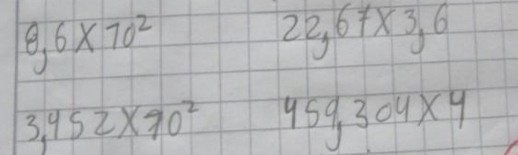 8,6 × 10² 22,67 × 3,6
3,452 × 10² 459,304 × 4